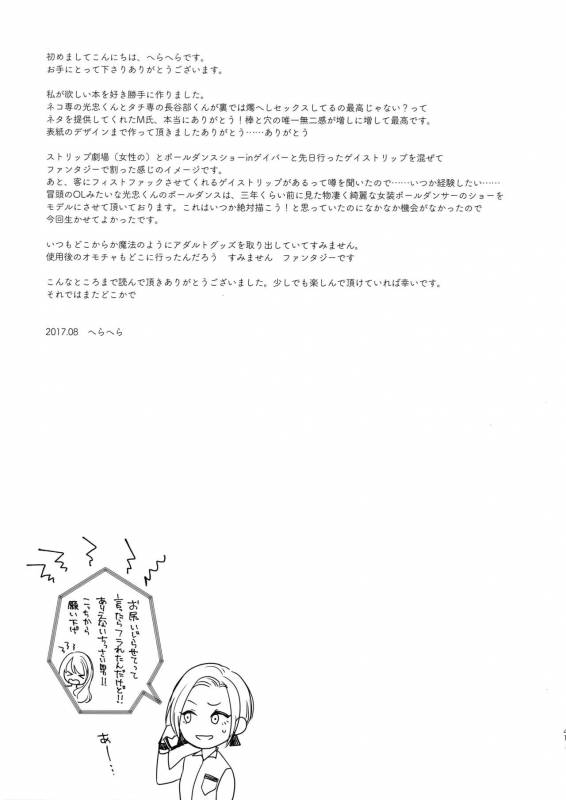 初めましてこんにちは、へらへらです。
お手にとって下さりありがとうございます。
私が欲しい本を好き勝手に作りました。
ネコ専の光忠くんとタチ専の長谷部くんが裏では燭へしセックスしてるの最高じゃない？って
ネタを提供してくれたM氏、本当にありがとう！棒と穴の唯一無二感が増しに増して最高です。
表紙のデザインまで作って頂きましたありがとう……ありがとう
ストリップ劇場（女性の）とポールダンスショーinゲイバーと先日行ったゲイストリップを混ぜて
ファンタジーで割った感じのイメージです。
あと、客にフィストファックさせてくれるゲイストリップがあるって噂を聞いたので……いつか経験したい……
冒頭のOLみたいな光忠くんのポールダンスは、三年くらい前に見た物凄く綺麗な女装ポールダンサーのショーを
モデルにさせて頂いております。これはいつか絶対描こう！と思っていたのになかなか機会がなかったので
今回生かせてよかったです。
いつもどこからか魔法のようにアダルトグッズを取り出していてすみません。
使用後のオモチャもどこに行ったんだろう　すみません　ファンタジーです
こんなところまで読んで頂きありがとうございました。少しでも楽しんで頂けていれば幸いです。
それではまたどこかで
2017.08　へらへら
お尻いじらせてって
言ったらフラれたんだけど!!
ありえないちっさい男!!
こっちから
願い下げ
あー…